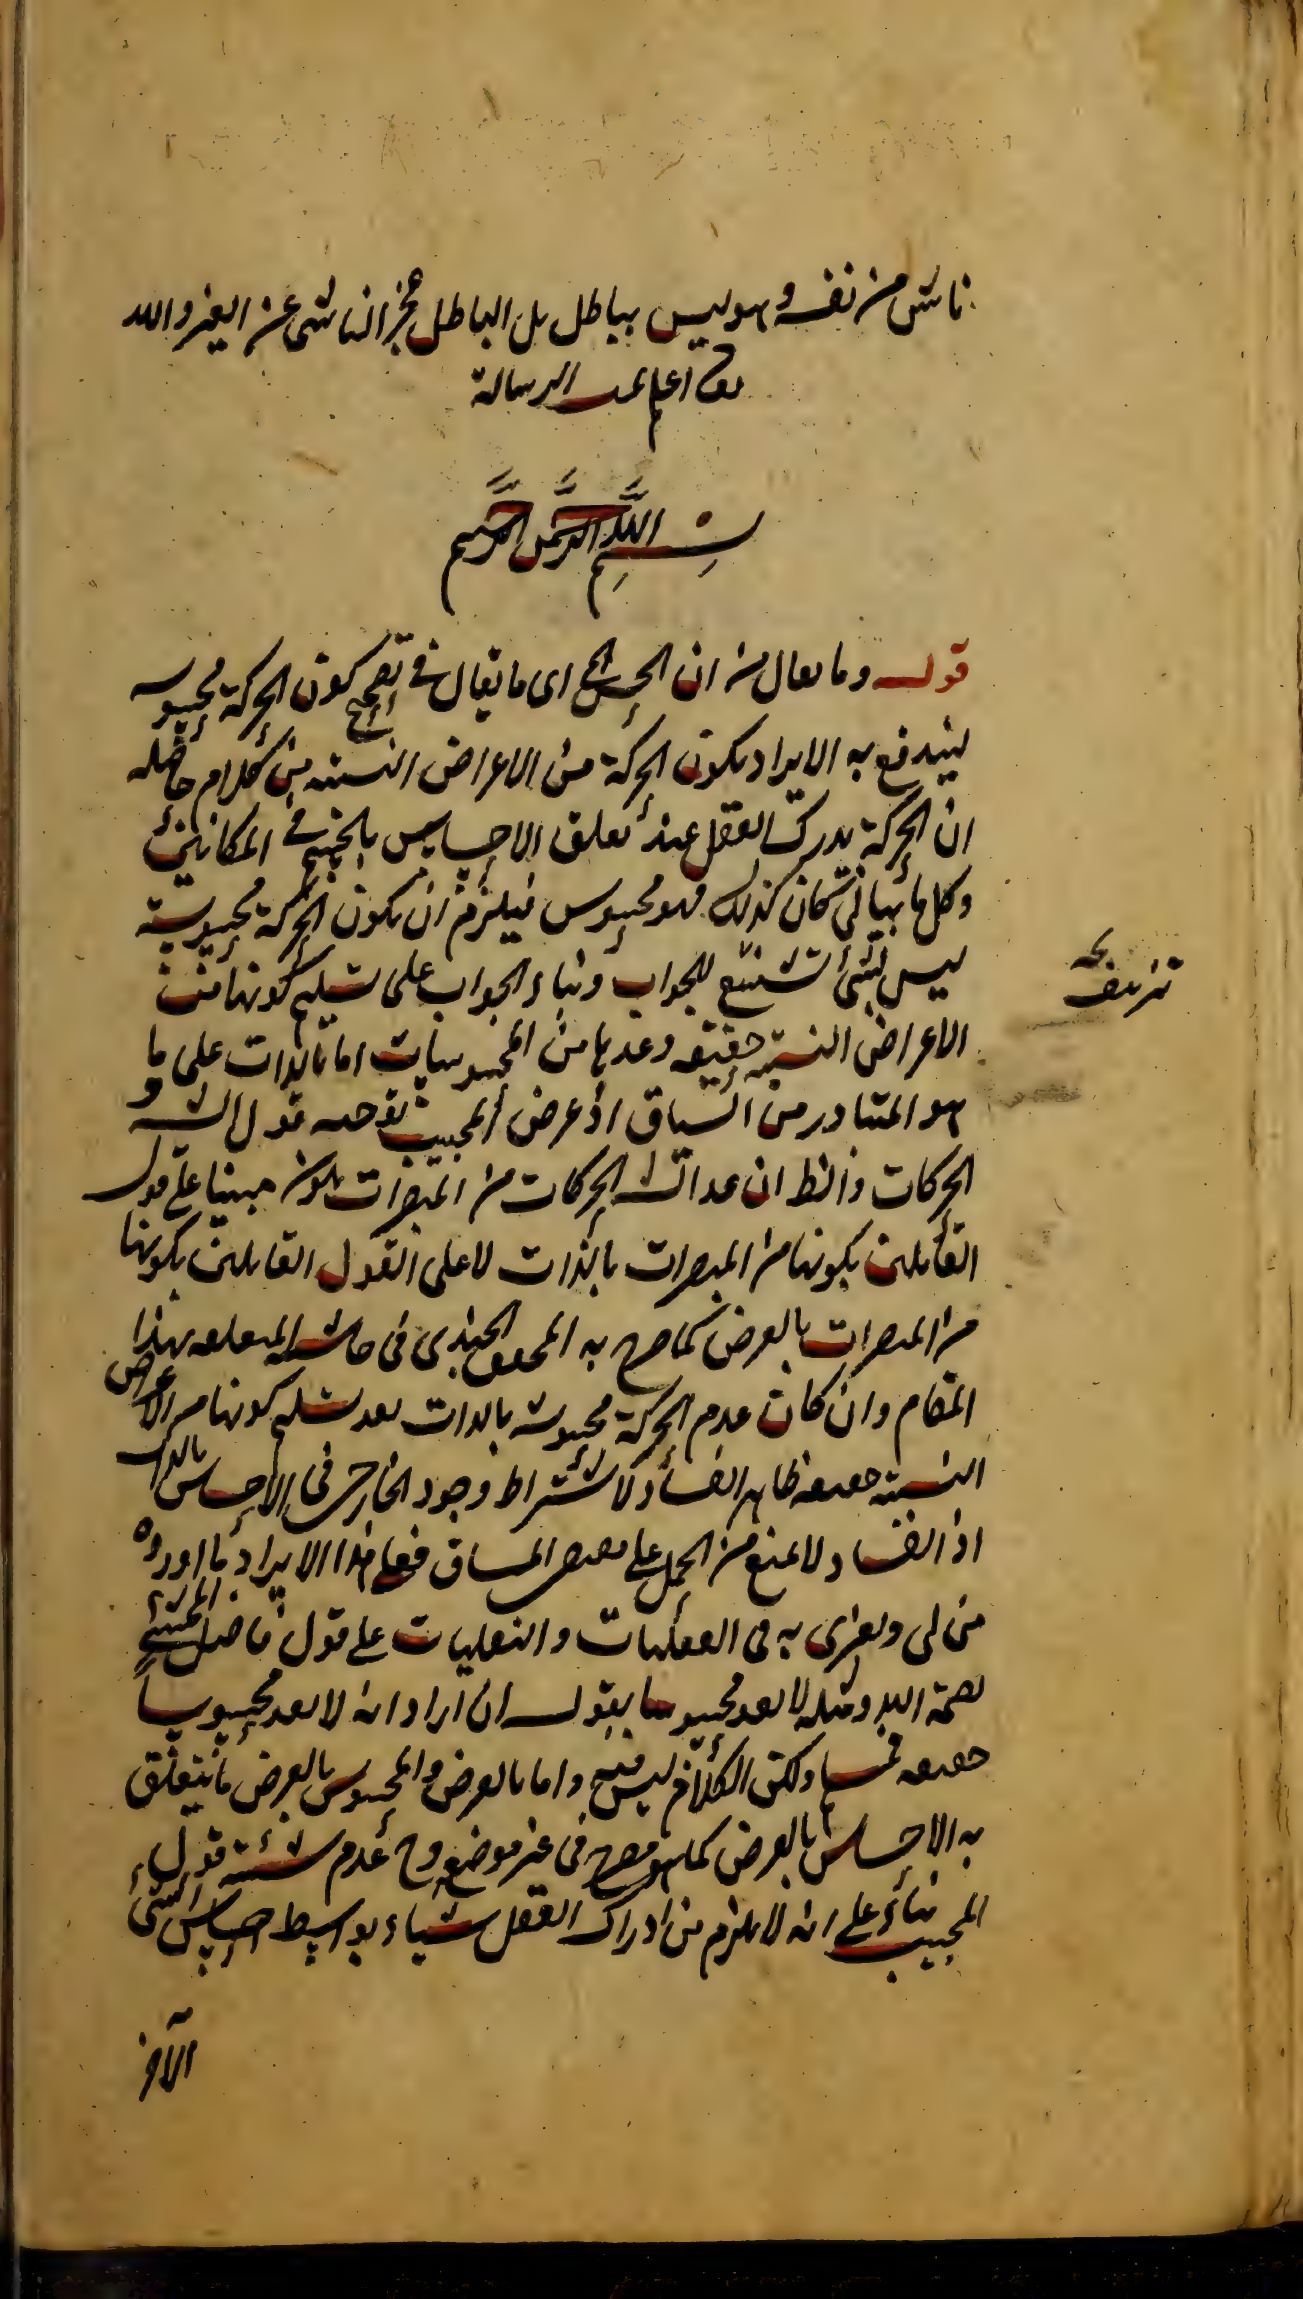 ناش من نفسه وهو ليس بباطل بل الباطل عجز الناشى عن الغير والله
تعالى اعلم تمت الرسالة
بسم الله الرحمن الرحيم
قوله وما يقال من ان الحس الخ اى ما يقال فى تصحيح كون الحركة محسوسة
ليندفع به الايراد بكون الحركة من الاعراض النسبية من كلام حاصله
ان الحركة يدرك العقل عند تعلق الاحساس بالجسم فى المكانين
وكل ما كان كذلك فهو محسوس فيلزم ان يكون الحركة محسوسة
ليس بشئ تشنيع للجواب وبناء الجواب على تسليم كونها من
الاعراض النسبية حقيقة وعدها من المحسوسات اما بالذات على ما
هو المتبادر من السياق اذ عرض المجيب توجيه قول الش و
الحركات والظ ان عد الش الحركات من المبصرات يكون مبنيا على قول
القائلين بكونها من المبصرات بالذات لا على القول القائلين بكونها
من المبصرات بالعرض كما صرح به المحقق فى حاشيته المتعلقة بهذا
المقام وان كان عدم الحركة محسوسة بالذات بعد تسليم كونها من الاعراض
النسبية حقيقة ظاهر الفساد لاشتراط وجود الخارجى فى الاحساس بالذات
اذ الفساد لا يمنع من الحمل على مقتضى المساق فعلى هذا الايراد ما اورده
من لى به فى العقليات والنقليات على قول فاضل المحشى
ومثله لا يعد محسوسا بقوله ان اراد انه لا يعد محسوسا
حقيقة فمسلم ولكن الكلام ليس فيه واما بالعرض والمحسوس بالعرض ما يتعلق
به الاحساس بالعرض كما هو مصرح فى غير موضعه وح عدم شيئية قول
المجيب بناء على انه لا يلزم من ادراك العقل شياء بواسطة احساس الشئ
الآخر